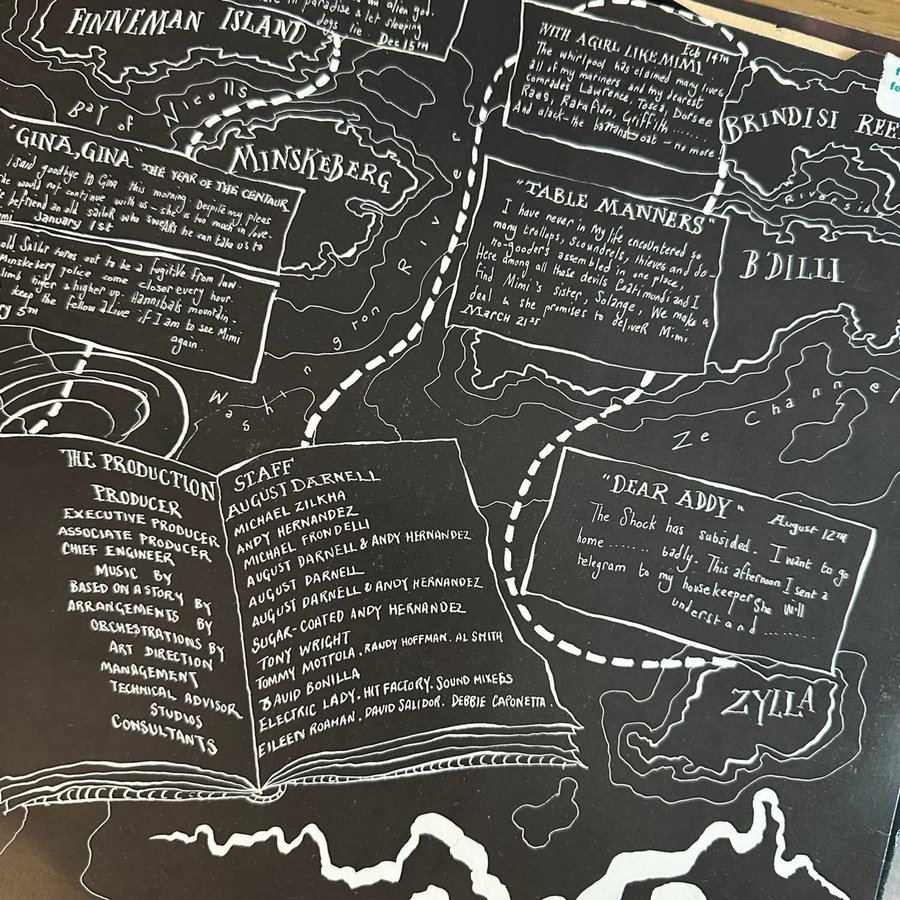 FINNEMAN ISLAND
alien god.
in paradise & let sleeping
dogs lie. Dec 15TH
WITH A GIRL LIKE MIMI Feb 14TH
The whirlpool has claimed many lives
all of my mariners, and my dearest
comrades Lawrence, Tosca, Dorsee
Raes, Rarafian, Griffith......
And alack - the bananaboat - no more
BRINDISI REE
Riverside
Bay of Nicolls
MINSKEBERG
"GINA, GINA" "THE YEAR OF THE CENTAUR
I said goodbye to Gina this morning. Despite my pleas
she would not continue with us - she is too much in love
befriend an old sailor who swears he can take us to
January 1st
old Sailor turns out to be a fugitive from law
Minskeberg police come closer every hour.
climb higer & higher up. Hannibals mountain...
keep the fellow alive if I am to see Mimi
again.
5TH
"TABLE MANNERS"
I have never in my life encountered so
many trollops, scoundrels, thieves and do-
no-gooders assembled in one place,
Here among all those devils Coatimundi and I
find Mimi's sister, Solange, We make a
deal & she promises to deliver Mimi.
MARCH 21ST
B'DILLI
Washington River
Ze Channel
THE PRODUCTION STAFF
PRODUCER AUGUST DARNELL
EXECUTIVE PRODUCER MICHAEL ZILKHA
ASSOCIATE PRODUCER ANDY HERNANDEZ
CHIEF ENGINEER MICHAEL FRONDELLI
MUSIC BY AUGUST DARNELL & ANDY HERNANDEZ
BASED ON A STORY BY AUGUST DARNELL
ARRANGEMENTS BY AUGUST DARNELL & ANDY HERNANDEZ
ORCHESTRATIONS BY SUGAR-COATED ANDY HERNANDEZ
ART DIRECTION TONY WRIGHT
MANAGEMENT TOMMY MOTTOLA. RANDY HOFFMAN. AL SMITH
TECHNICAL ADVISOR DAVID BONILLA
STUDIOS ELECTRIC LADY. HIT FACTORY. SOUND MIXERS
CONSULTANTS EILEEN ROAMAN. DAVID SALIDOR. DEBBIE CAPONETTA.
"DEAR ADDY" August 12TH
The Shock has subsided. I want to go
home....... badly. This afternoon I sent a
telegram to my housekeeper, She will
understand.........
ZYLLA